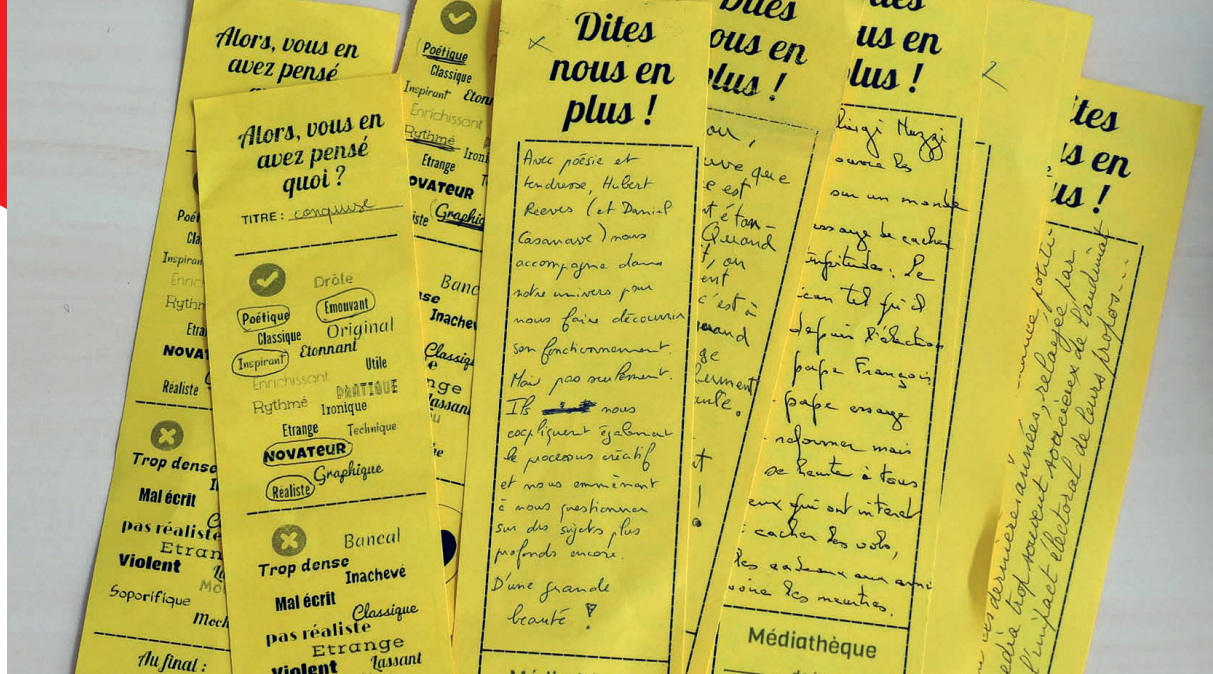 Alors, vous en
avez pensé
Poét
Cla
Inspiran
Enric
Rythm
Etra
NOVAT
Réaliste
Trop dense
Mal écrit
pas réaliste
Etran
Violent
Soporifique
Moch
Au final :
Alors, vous en
avez pensé
quoi ?
TITRE : conquise
Drôle
Poétique
Emouvant
Classique
Original
Inspirant
Etonnant
Utile
Enrichissant
PRATIQUE
Rythmé
Ironique
Etrange
Technique
NOVATEUR
Graphique
Réaliste
Bancal
Trop dense
Inachevé
Mal écrit
Classique
pas réaliste
Etrange
Violent
Lassant
Poétique
Classique
Inspirant Etonn
Enrichissant
Rythmé
Ironi
Etrange
OVATEUR
iste
Graphiq
Banc
nse
Inachev
Classiq
nge
assan
Dites
nous en
plus !
Avec poésie et
tendresse, Hubert
Reeves (et Daniel
Casanave) nous
accompagne dans
notre univers pour
nous faire découvrir
son fonctionnement.
Mais pas seulement.
Ils nous
expliquent également
le processus créatif
et nous emmènent
à nous questionner
sur des sujets plus
profonds encore.
D'une grande
beauté !
Dites
ous en
plus !
ou,
uve que
ce est
t éton-
Quand
t, on
ent
c'est à
quand
ge
lerment
ante.
et
!
us en
lus !
Luigi Nuzzi
ouvre les
sur un monde
essaye de cacher
turpitudes. Le
can tel qu'il
depuis l'élection
pape François
pape essaye
reformer mais
se heurte à tous
eux qui ont interet
cacher les vols,
les cadeaux aux amis
voire les meurtres.
Médiathèque
ites
us en
us !
ces dernieres années, relayée par
edia trop souvent soucieux de l'audimat
l'impact électoral de leurs propos...